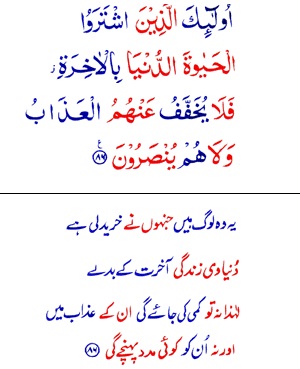 اُولٰٓئِكَ الَّذِيْنَ اشْتَرَوُا
الْحَيٰوةَ الدُّنْيَا بِالْاٰخِرَةِ ز
فَلَا يُخَفَّفُ عَنْهُمُ الْعَذَابُ
وَلَا هُمْ يُنْصَرُوْنَ ع ﴿۸۶﴾
یہ وہ لوگ ہیں جنہوں نے خرید لی ہے
دُنیاوی زندگی آخرت کے بدلے
لہٰذا نہ تو کمی کی جائے گی ان کے عذاب میں
اور نہ اُن کو کوئی مدد پہنچے گی ﴿۸۶﴾